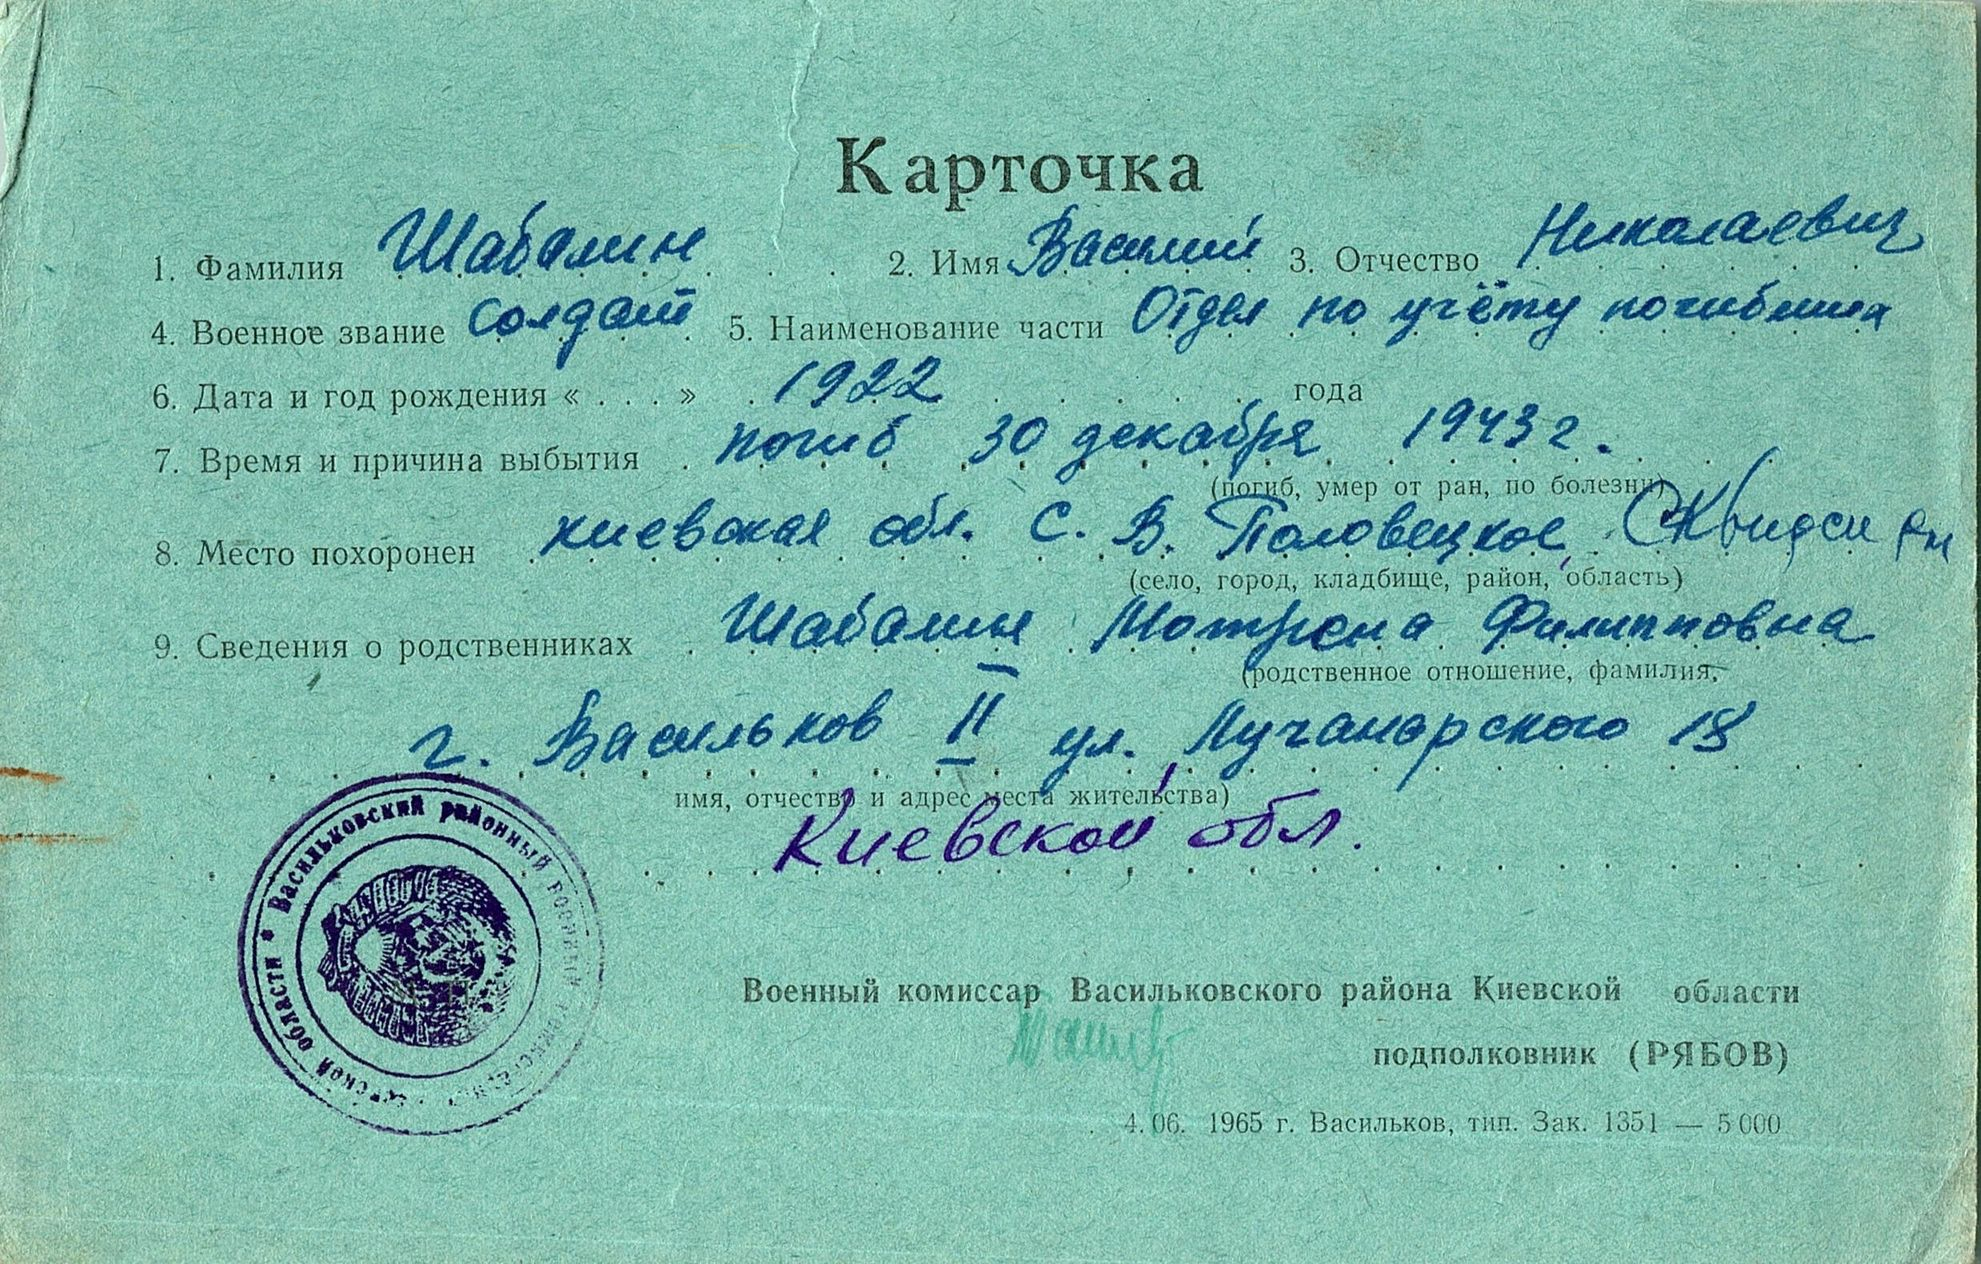 Карточка
1. Фамилия Шабалин 2. Имя Василий 3. Отчество Николаевич
4. Военное звание солдат 5. Наименование части Отдел по учёту погибших
6. Дата и год рождения « . . . » 1922 года
7. Время и причина выбытия погиб 30 декабря 1943 г.
(погиб, умер от ран, по болезни)
8. Место похоронен киевская обл. С. В. Половецкое,
(село, город, кладбище, район, область)
9. Сведения о родственниках Шабалин Мотрена Филипповна
(родственное отношение, фамилия,
г. Васильков II ул. Лучанарского 18
имя, отчество и адрес места жительства)
Киевской обл.
* Васильковский районный военный области
Военный комиссар Васильковского района Киевской области
подполковник (РЯБОВ)
4. 06. 1965 г. Васильков, тип. Зак. 1351 — 5 000